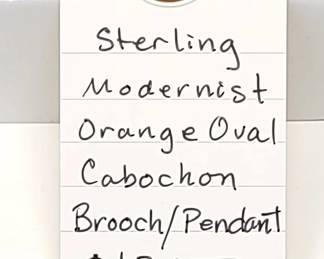 Sterling
Modernist
Orange Oval
Cabochon
Brooch/Pendant